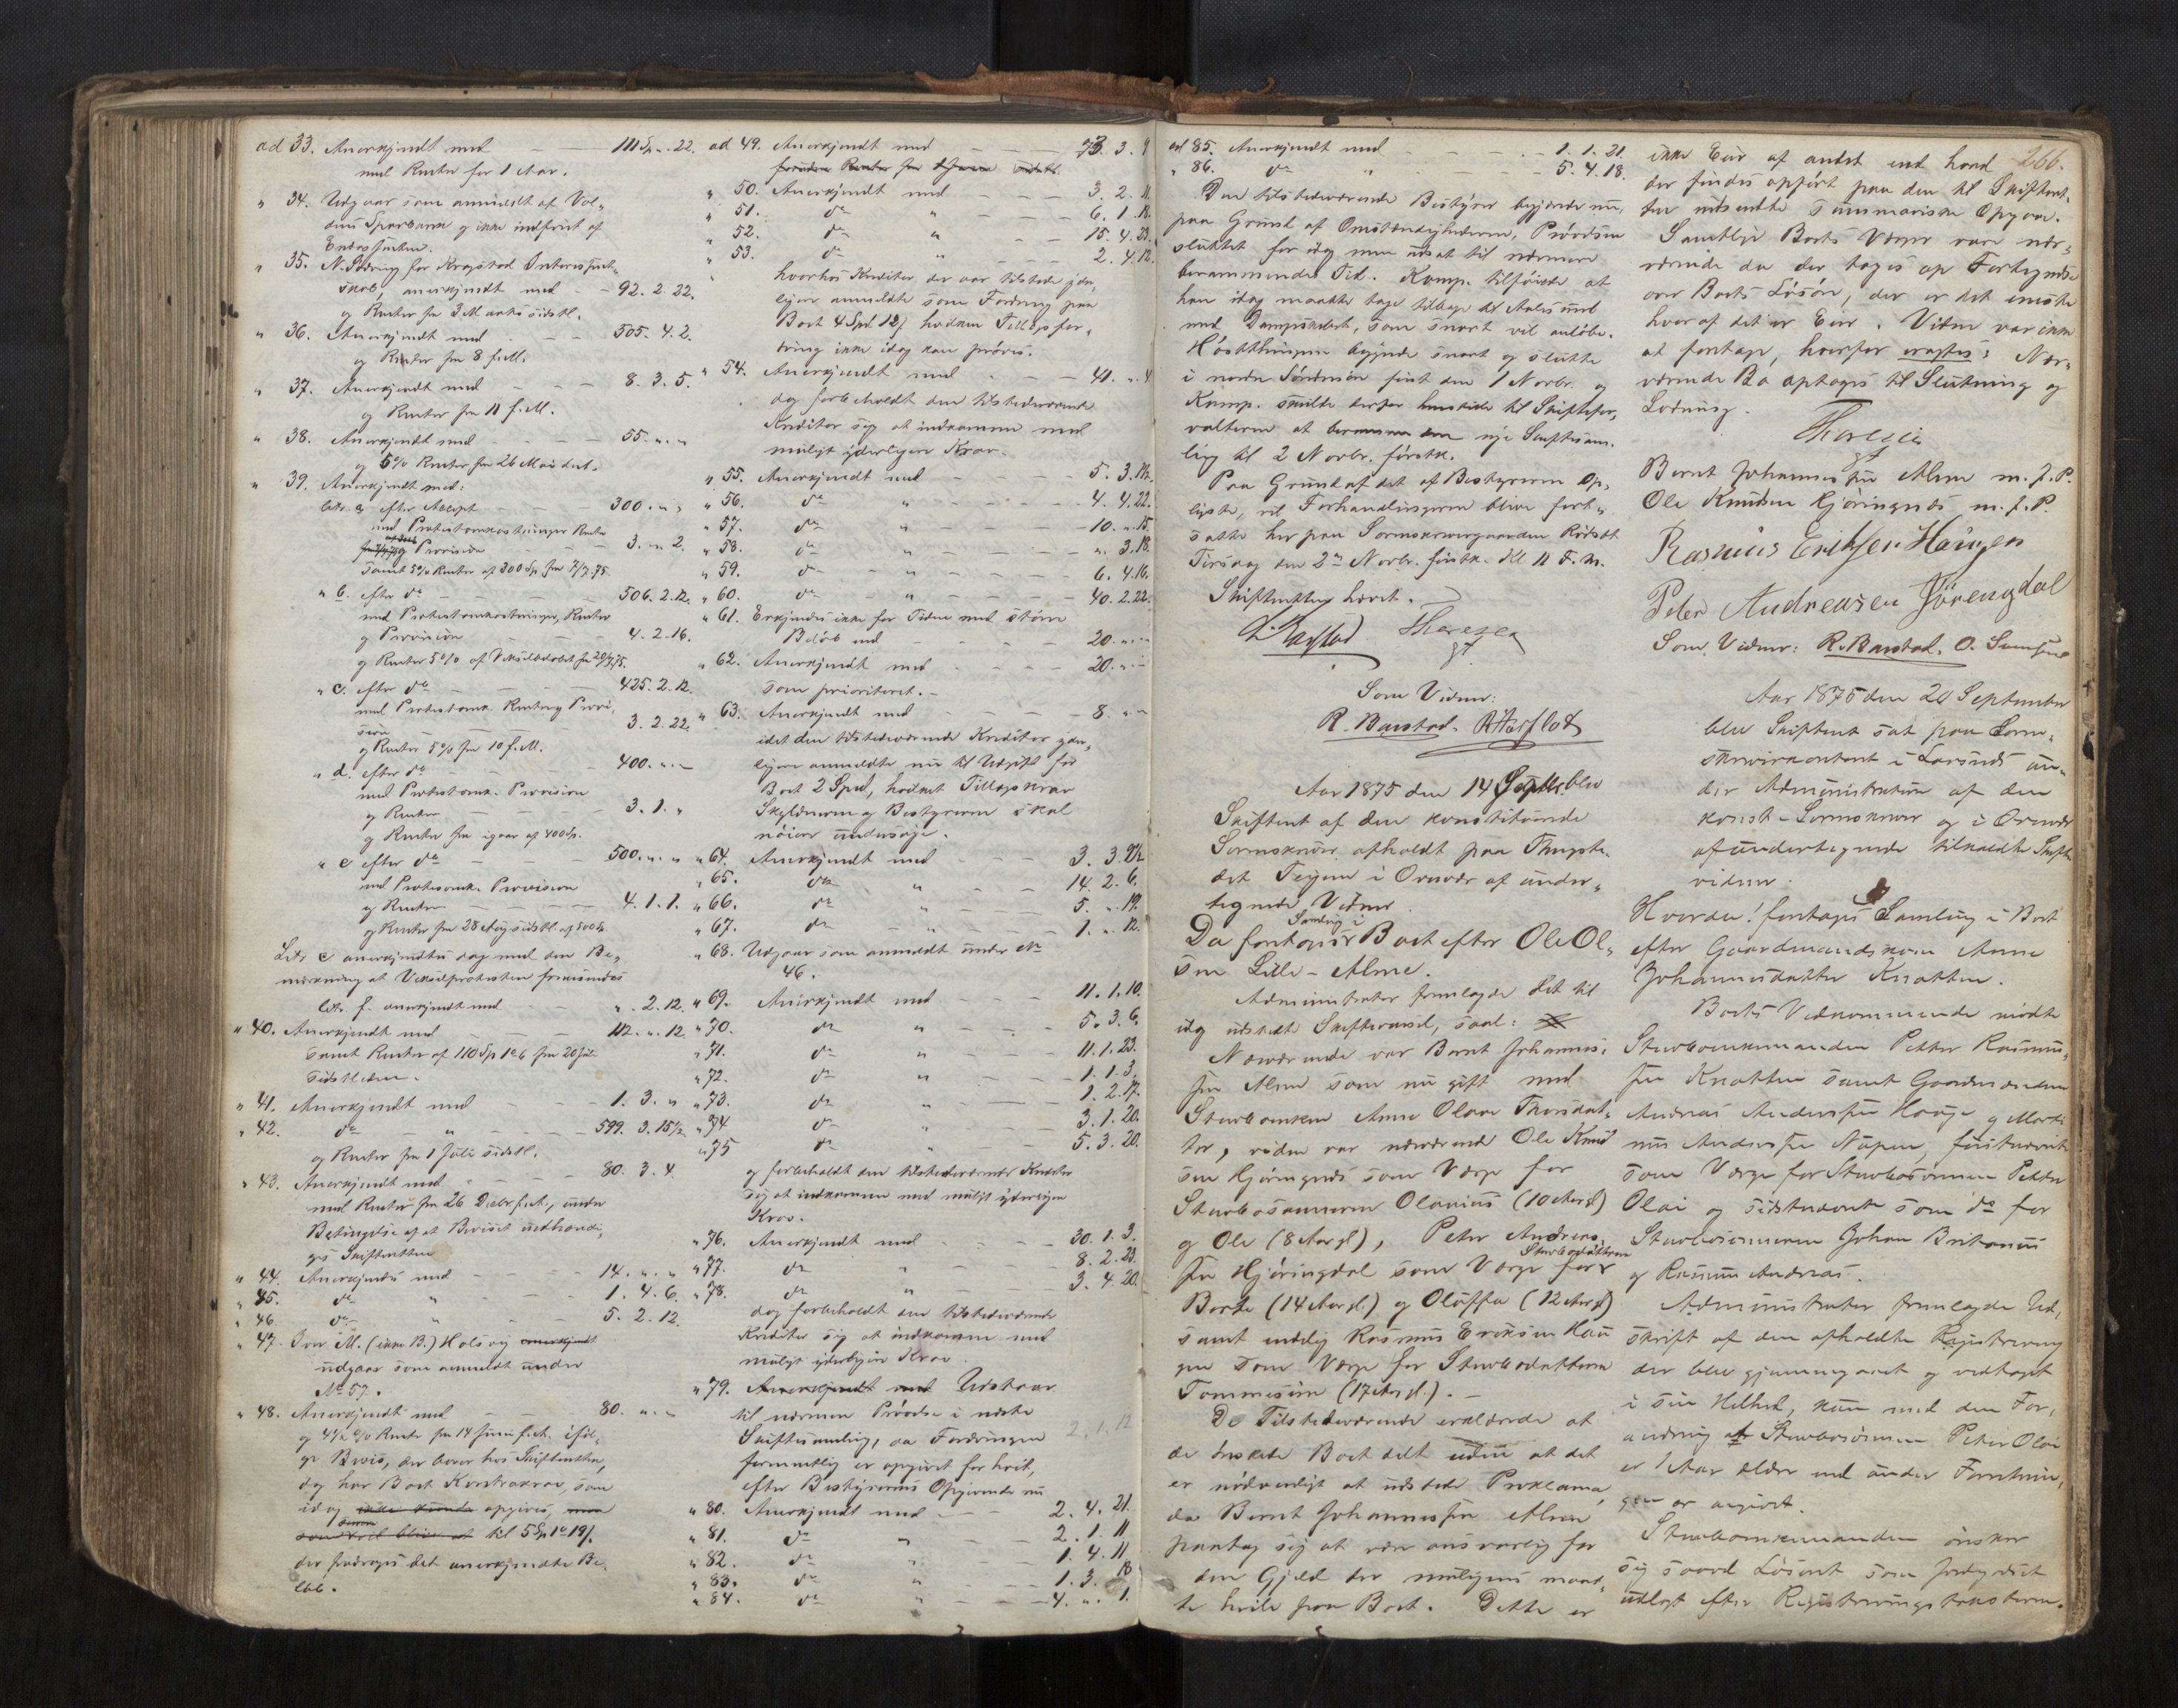 ad 33. Anerkjendt med — 111 Sp. „ 22.
med Renter for 1 Aar.
„ 34. Udgaar som anmeldt af Vol-
dens Sparebank og ikke indfriet af
„ 35. N. for Krogstad Interessent-
skab, anerkjendt med — 92. 2. 22.
og Renter fra 3 Marts sidstl.
„ 36. Anerkjendt med — 505. 4. 2.
og Renter fra 8 f. M.
„ 37. Anerkjendt med — 8. 3. 5.
og Renter fra 11 f. M.
„ 38. Anerkjendt med — 55. „ „
og 5% Renter fra 26 Mai
„ 39. Anerkjendt med:
Litr. a, efter Accept — 300. „ „
med Protestomkostninger Renter
og Provision — 3. „ 2.
samt 5% Renter af 300 Sp. fra 7/7 75.
„ b. efter do — 506. 2. 12.
med Protestomkostninger, Renter
og Provision — 4. 2. 16.
og Renter 5% af Vexelbeløbet fra
„ c. efter do — 425. 2. 12.
med Protestomk. Renter og Provi-
sion — 3. 2. 22.
og Renter 5% fra 10 f. M.
„ d. efter do — 400. „ „
med Protestomk. Provision
og Renter — 3. 1. „
og Renter fra igaar af 400 Sp.
„ e efter do — 500. „ „
med Protestomk. Provision
og Renter — 4. 1. 1.
og Renter fra 28 Aug sidstl. af 500 Sp.
Litr e anerkjendtes dog med den Be-
mærkning at Vexelprotesten fremsendes
Litr. f. anerkjendt med — „. 2. 12.
„ 40. Anerkjendt med — 112. „. 12
samt Renter af 110 Sp fra 20 Juli
sidstleden.
„ 41. Anerkjendt med — 1. 3. „
„ 42. do „ — 599. 3. 15½
og Renter fra 1 Juli sidstl.
„ 43. Anerkjendt med — 80. 3. 4.
med Renter fra 26 Decbr f. A., under
Betingelse af at Beviset indhændi-
ges Skifteretten
„ 44. Anerkjendes med — 14. „. „
„ 45. do „ — 1. 4. 6.
„ 46 do „ — 5. 2. 12.
„ 47. Iver M. (ikke B.) Holsvig anerkjendt
udgaar som anmeldt under
No 57.
„ 48. Anerkjendt med — 80. „. „
og 4½ % Rente fra 14 Juni f. A. iføl-
ge Bevis, der beror hos Skifteretten,
dog har Boet Kontrakrav, som
idag ikke kunde opgives, men
til 5 Sp 1 o 19 s.
der fradrages det anerkjendte Be-
løb.
ad 49. Anerkjendt med — 73. 3. 9
„ 50. Anerkjendt med — 3. 2. 11.
„ 51. do „ — 6. 1. 18.
„ 52. do „ — 15. 4. 23.
„ 53. do „ — 2. 4. 12.
hvorhos Kreditor der var tilstede yder-
ligere anmeldte som Fordring paa
Boet 4 Spd 12 s hvilken Tillægsfor-
dring ikke idag kan prøves.
„ 54. Anerkjendt med — 41. „. 4
dog forbeholdt den tilstedeværende
Kreditor sig at indkomme med
muligt yderligere Krav.
„ 55. Anerkjendt med — 5. 3. 12.
„ 56. do „ — 4. 4. 22.
„ 57. do „ — 10. „. 15
„ 58. do „ — „. 3. 18.
„ 59. do „ — 6. 4. 16.
„ 60. do „ — 40. 2. 22.
„ 61. Erkjendes ikke for Tiden med større
Beløb end — 20. „. „
„ 62. Anerkjendt med — 20. „. „
som prioriteret. —
„ 63. Anerkjendt med — 8. „ „
idet den tilstedeværende Kreditor yder-
ligere anmeldte nu til Udgift for
Boet 2 Spd, hvilket Tillægskrav
Skyldneren og Bestyreren skal
nøiere undersøge.
„ 64. Anerkjendt med — 3. 3.
„ 65. do „ — 14. 2. 6.
„ 66. do „ — 5. „. 19.
„ 67. do „ — 1. „. 12.
„ 68. Udgaar som anmeldt under No
46.
„ 69. Anerkjendt med — 11. 1. 10.
„ 70. do „ — 5. 3. 6.
„ 71. do „ — 11. 1. 23.
„ 72. do „ — 1. 1. 3.
„ 73. do „ — 1. 2. 17.
„ 74 do „ — 3. 1. 20.
„ 75 do „ — 5. 3. 20.
og forbeholdt den tilstedeværende Kreditor
sig at indkomme med muligt yderligere
Krav.
„ 76. Anerkjendt med — 30. 1. 3.
„ 77. do „ — 8. 2. 23.
„ 78. do „ — 3. 4. 20.
dog forbeholdt den tilstedeværende
Kreditor sig at indkomme med
muligt yderligere Krav.
„ 79. Anerkjendt med Udstaar
til nærmere Prøvelse i næste
Skiftesamling, da Fordringen 2. 1. 12
formentlig er opgivet for høit,
efter Bestyrerens Opgivende nu
„ 80. Anerkjendt med — 2. 4. 21.
„ 81. do „ — 2. 1. 11
„ 82. do „ — 1. 4. 11
„ 83. do „ — 1. 3. 18
„ 84. do „ — 4. „. 1.
ad 85. Anerkjendt med — 1. 1. 21.
„ 86. do „ — 5. 4. 18.
Den tilstedeværende Bestyrer begjærede nu,
paa Grund af Omstændighederne, Prøvelsen
sluttet for idag men udsat til nærmere
berammendes Tid. Komp. tilføiede at
han idag maatte tage tilbage til Aalesund
med Dampskibet, som snart vil anløbe.
Høstthingene begynde snart og slutte
i nordre Søndmør først den 1 Novbr. og
Komp. stillede derfor henstilede til Skiftefor-
valteren at beramme den nye Skiftesam-
ling til 2 Novbr. førstk.
Paa Grund af det af Bestyreren Op-
lyste, vil Forhandlingerne blive fort-
satte her paa Sorenskrivergaarden Rødset
Tirsdag den 2den Novbr. førstk. Kl 11 F. M.
Skifteretten hævet.
Thoresen
gt
Som Vidner:
R. Barstad. R Hasflot
Aar 1875 den 14 Septbr. blev
Skifteret af den konstituerede
Sorenskriver afholdt paa Thingste-
det Teigene i Ørnevær af under-
tegnede Vidner.
Samling i
Da foretoges Boet efter Ole Ol-
sen Lille-Alme.
Administrator fremlagde det til
idag udstedte Skiftevarsel, saal:
Nærværende var Bernt Johannes-
sen Alme som nu gift med
Sterboenken Anne Olave Thorsdat-
ter, viden var nærværende Ole Knud
sen Hjøringnæs som Værge for
Sterbosønnerne Olavius (10 Aar gl)
og Ole (8 Aar gl), Peter Andreas-
Sterbodøttrene
sen Hjøringdal som Værge for
Berte (14 Aar gl.) og Oluffa (12 Aar gl)
samt endelig Rasmus Eriksen Hau
gen som Værge for Sterbodatteren
Tommesine (17 Aar gl.). —
De Tilstedeværende erklærede at
de ønskede Boet delt uden at det
er nødvendigt at udstede Proklama,
da Bernt Johannessen Alme
paatog sig at være ansvarlig for
den Gjæld der muligens maat-
te hvile paa Boet. Dette er
266.
ikke Eier af andet end hvad
der findes opført paa den til Skifteret-
ten indsendte summariske Opgave.
Samtlige Boets Værger vare nær-
værende da der toges op Fortegnelse
over Boets Løsøre, der er det eneste
hvoraf det er Eier. Videre var ikke
at foretage, hvorfor eragtes: Nær-
værende Bo optages til Slutning og
Lodning.
Thoresen
gt
Bernt Johannessen Alme m. f. P.
Ole Knudsen Hjøringnæs m. f. P.
Rasmus Eriksen Haugen
Peter Andreasen Jörengdal
Som Vidner: R. Barstad. O.
Aar 1875 den 20 September
blev Skifteret sat paa Soren-
skriverkontoret i Larsnæs un-
der Administration af den
konst. Sorenskriver og i Overvær
af undertegnede tilkaldte Skifte
vidner.
Hvorda! foretages Samling i Boet
efter Gaardmandskone Anne
Johannesdatter Knotten.
Boets Vedkommende mødte
Sterboenkemanden Petter Rasmus-
sen Knotten samt Gaardmændene
Andreas Anderssen Hauge og Marti
nus Anderssen Nupen, førstnævnte
som Værge for Sterbosønnen Petter
Olai og sidstnævnte som do for
Sterbosønnerne Johan Britanus
og Rasmus Andreas.
Administrator fremlagde Ud-
skrift af den afholdte Registrering
der blev gjennemgaaet og vedtaget
i sin Helhed, kun med den For-
andring at Sterbosønnen Peter Olai
er 1 Aar ældre end under Forretnin-
gen er angivet.
Sterboenkemanden ønsker
sig saavel Løsøret som Jordegodset
udlagt efter Registreringstaksterne.